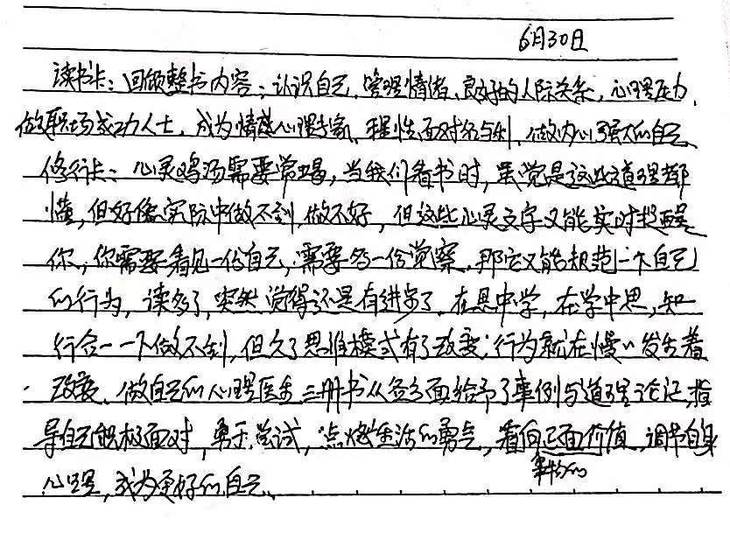 6月30日
读书卡：回顾整书内容：认识自己，管理情绪，良好的人际关系，心理压力，
做职场成功人士，成为情感心理专家，理性面对名与利，做内心强大的自己
修行卡：心灵鸡汤需要常喝，当我们看书时，虽觉是这些道理都
懂，但好像实际中做不到，做不好，但这些心灵文字又能实时提醒
你，你需要看见一份自己，需要多一份觉察，那它又能规范一个自己
的行为，读多了，突然觉得还是有进步了，在思中学，在学中思，知
行合一一下做不到，但久了思维模式有了改变；行为就在慢慢发生着
改变、做自己的心理医生三册书从各方面给予了案例与道理论证，指
导自己积极面对，勇于尝试，点燃生活的勇气，看向正面价值，调节自身
事物的
心理，成为更好的自己。